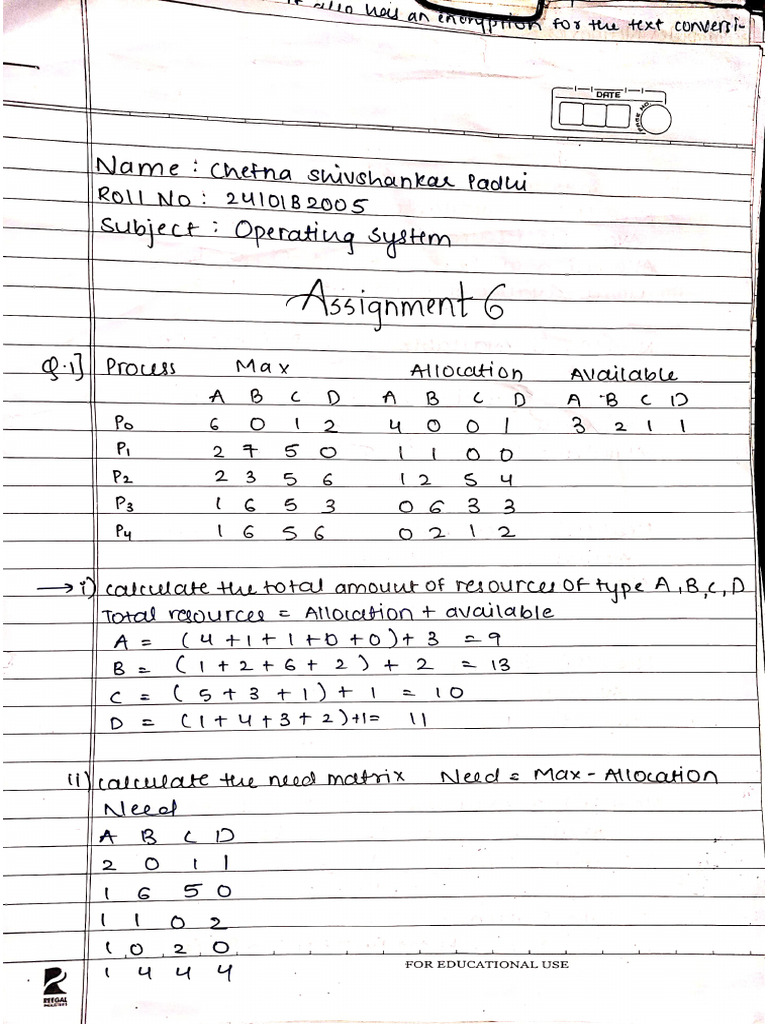 it also has an encryption for the text conversi-
DATE
Name : Chetna Shivshankar Padhi
Roll No : 24101B2005
Subject : Operating System
Assignment 6
Q.1] Process Max Allocation Available
A B C D A B C D A B C D
P0 6 0 1 2 4 0 0 1 3 2 1 1
P1 2 7 5 0 1 1 0 0
P2 2 3 5 6 1 2 5 4
P3 1 6 5 3 0 6 3 3
P4 1 6 5 6 0 2 1 2
→ i) calculate the total amount of resources of type A,B,C,D
Total resources = Allocation + available
A = (4+1+1+0+0)+3 = 9
B = (1+2+6+2)+2 = 13
C = (5+3+1)+1 = 10
D = (1+4+3+2)+1= 11
ii) calculate the need matrix Need = Max - Allocation
Need
A B C D
2 0 1 1
1 6 5 0
1 1 0 2
1 0 2 0
1 4 4 4
FOR EDUCATIONAL USE
REEGAL